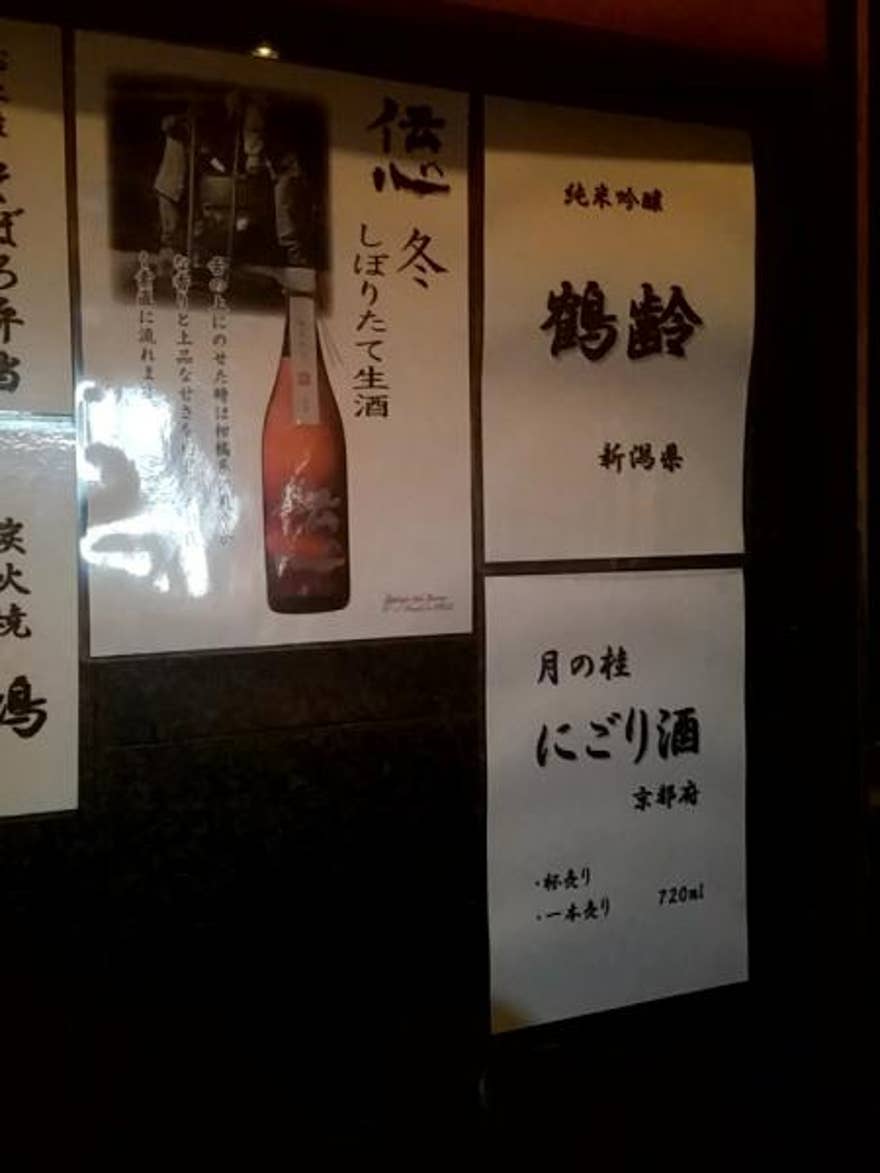 そぼろ弁当
炭火焼
伝心
冬
しぼりたて生酒
舌の上にのせた時は柑橘系の
香りと上品な
に流れます
伝心
純米吟醸
鶴齢
新潟県
月の桂
にごり酒
京都府
・杯売り
・一本売り 720ml